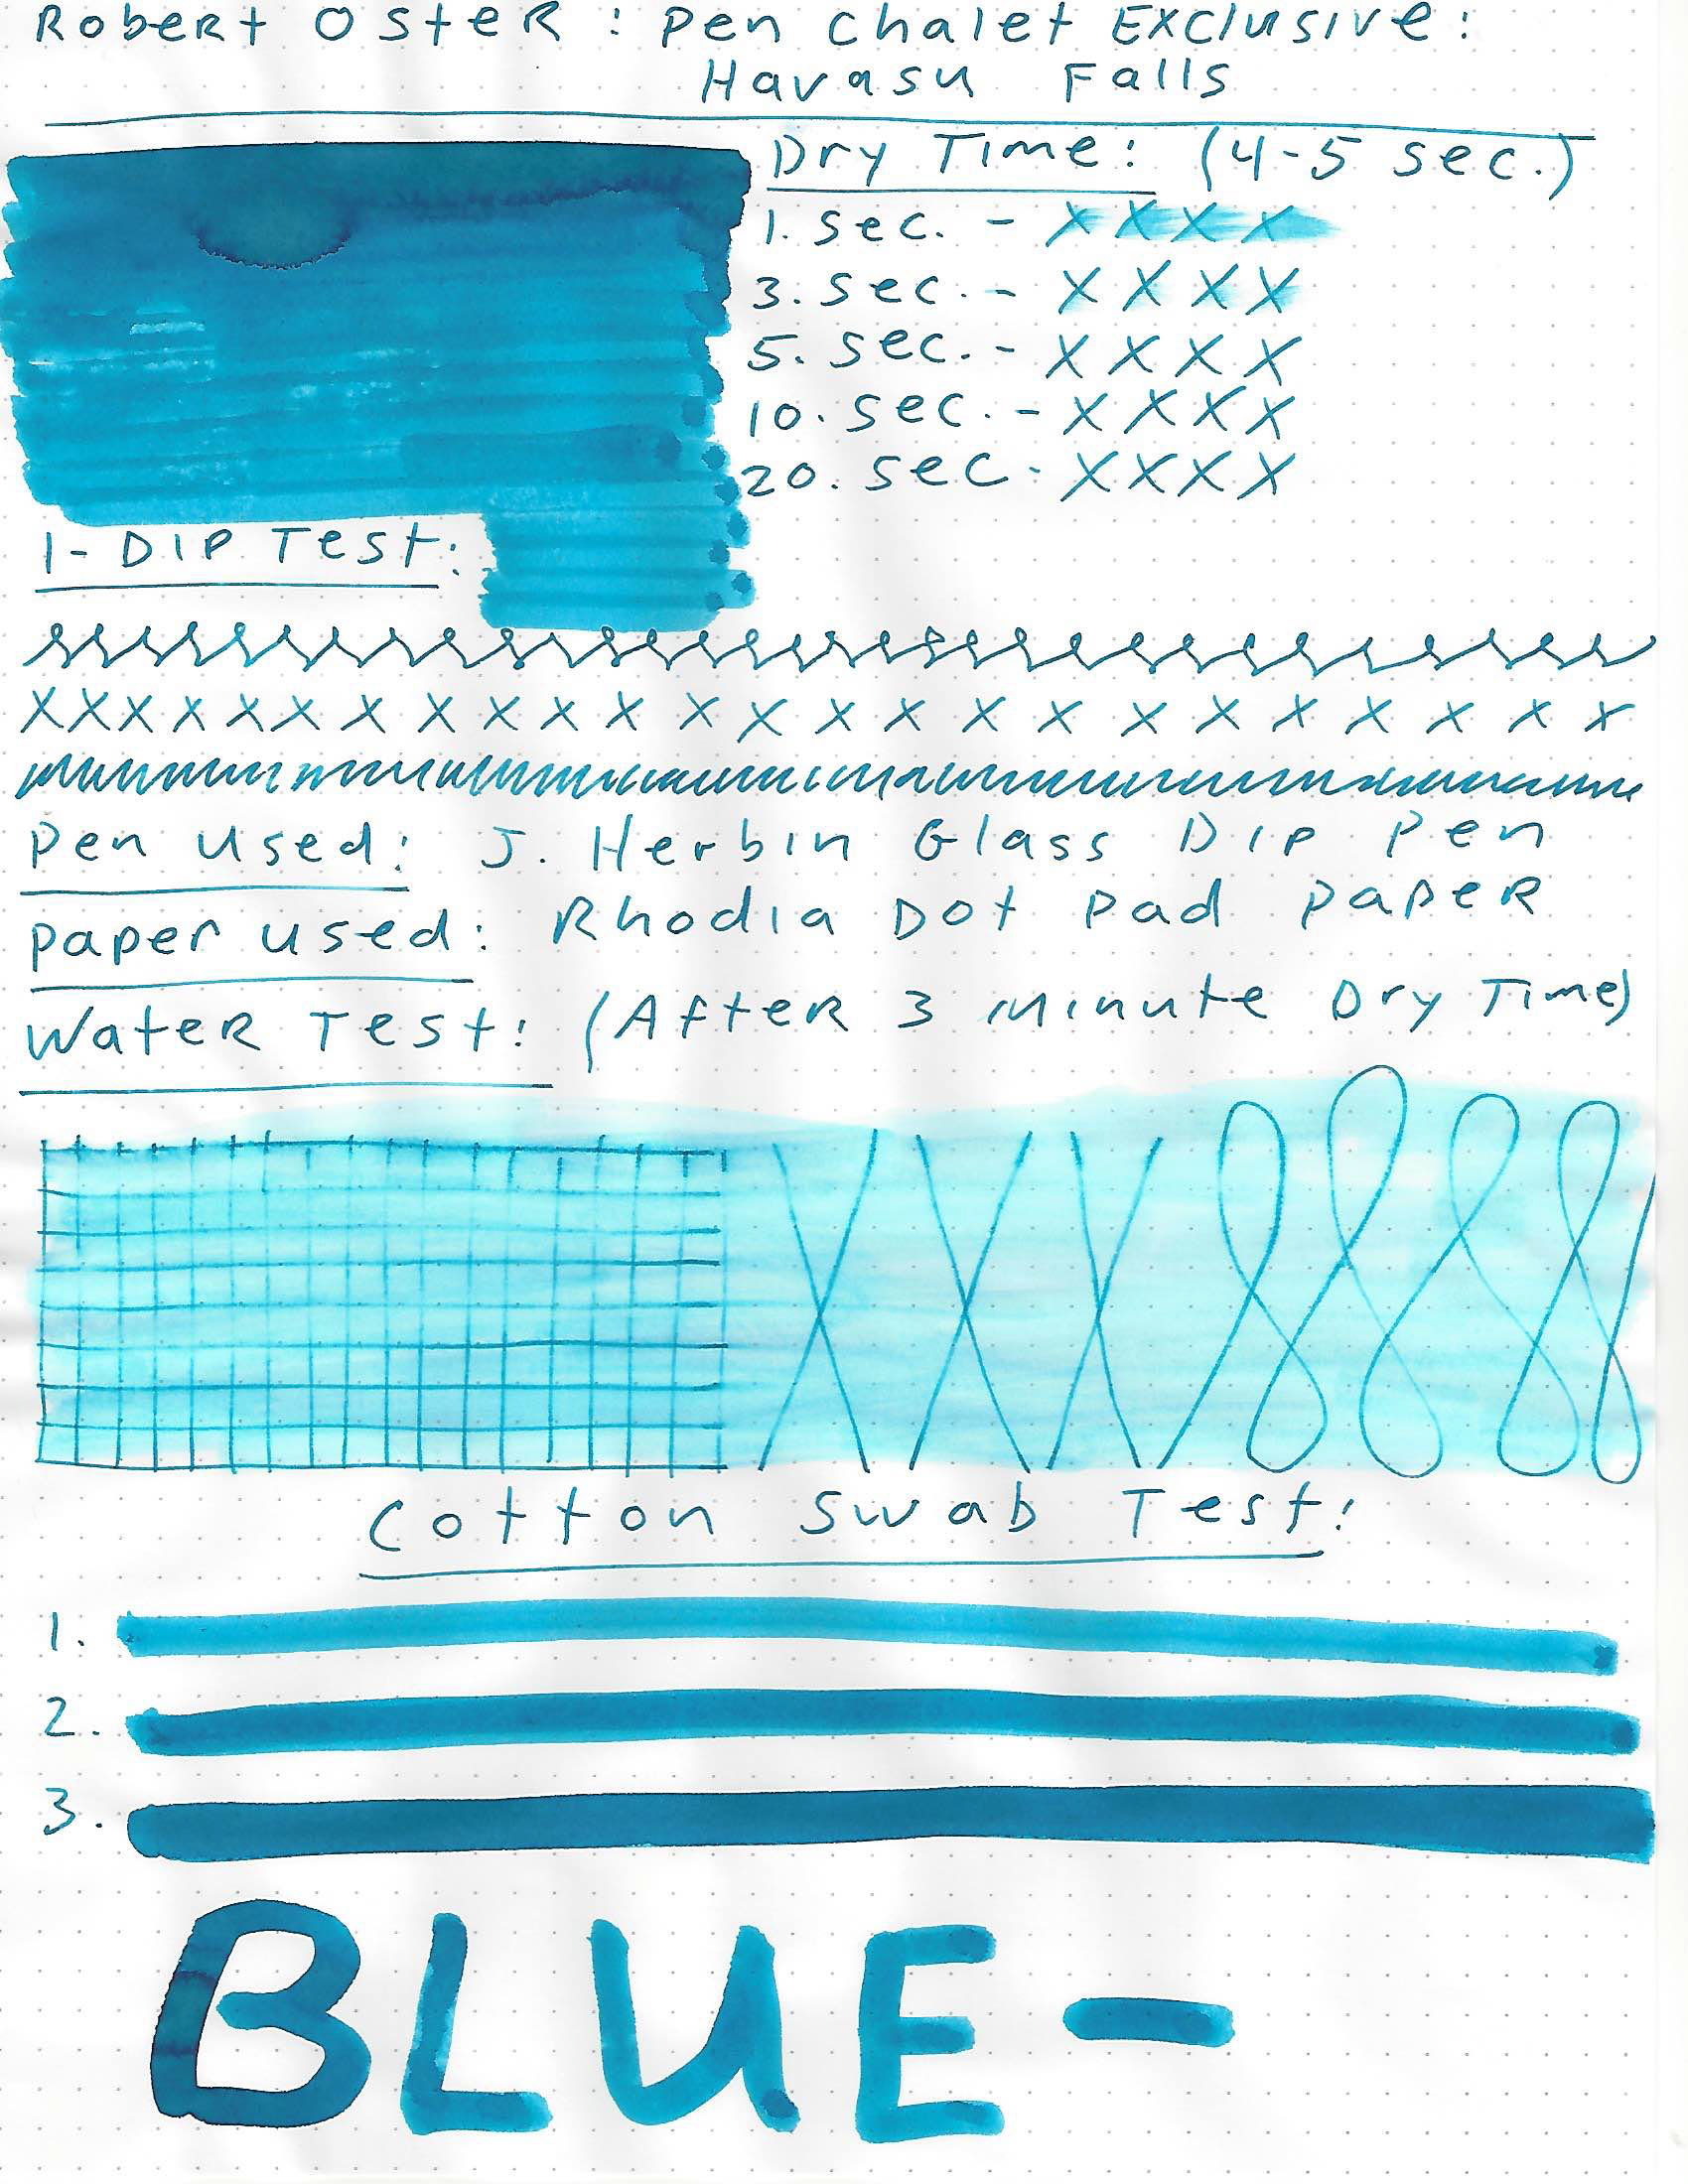 Robert Oster : Pen Chalet Exclusive :
Havasu Falls
Dry Time: (4-5 sec.)
1. sec. - X X X X
3. sec. - X X X X
5. sec. - X X X X
10. sec. - X X X X
20. sec - X X X X
1- DIP Test:
X X X X X X X X X X X X X X X X X X X X X X X X
Pen Used: J. Herbin Glass Dip Pen
Paper used: Rhodia Dot Pad Paper
Water Test: (After 3 Minute Dry Time)
Cotton Swab Test:
1.
2.
3.
BLUE-